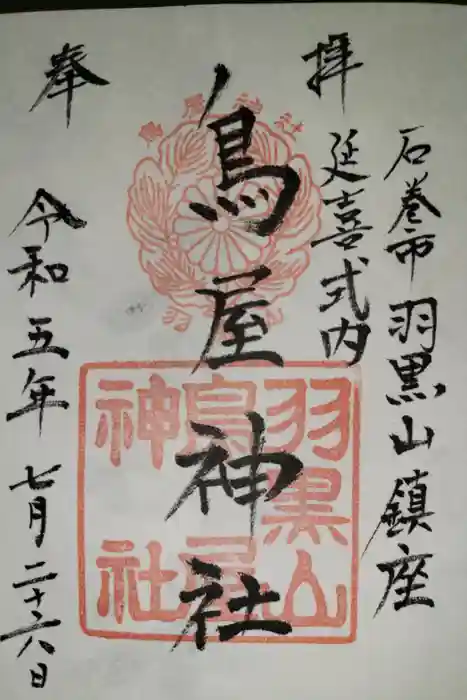 石巻市羽黒山鎮座
拝
延喜式内
鳥屋神社
奉
令和五年七月二十六日
鳥屋神社
羽黒山
鳥屋
神社